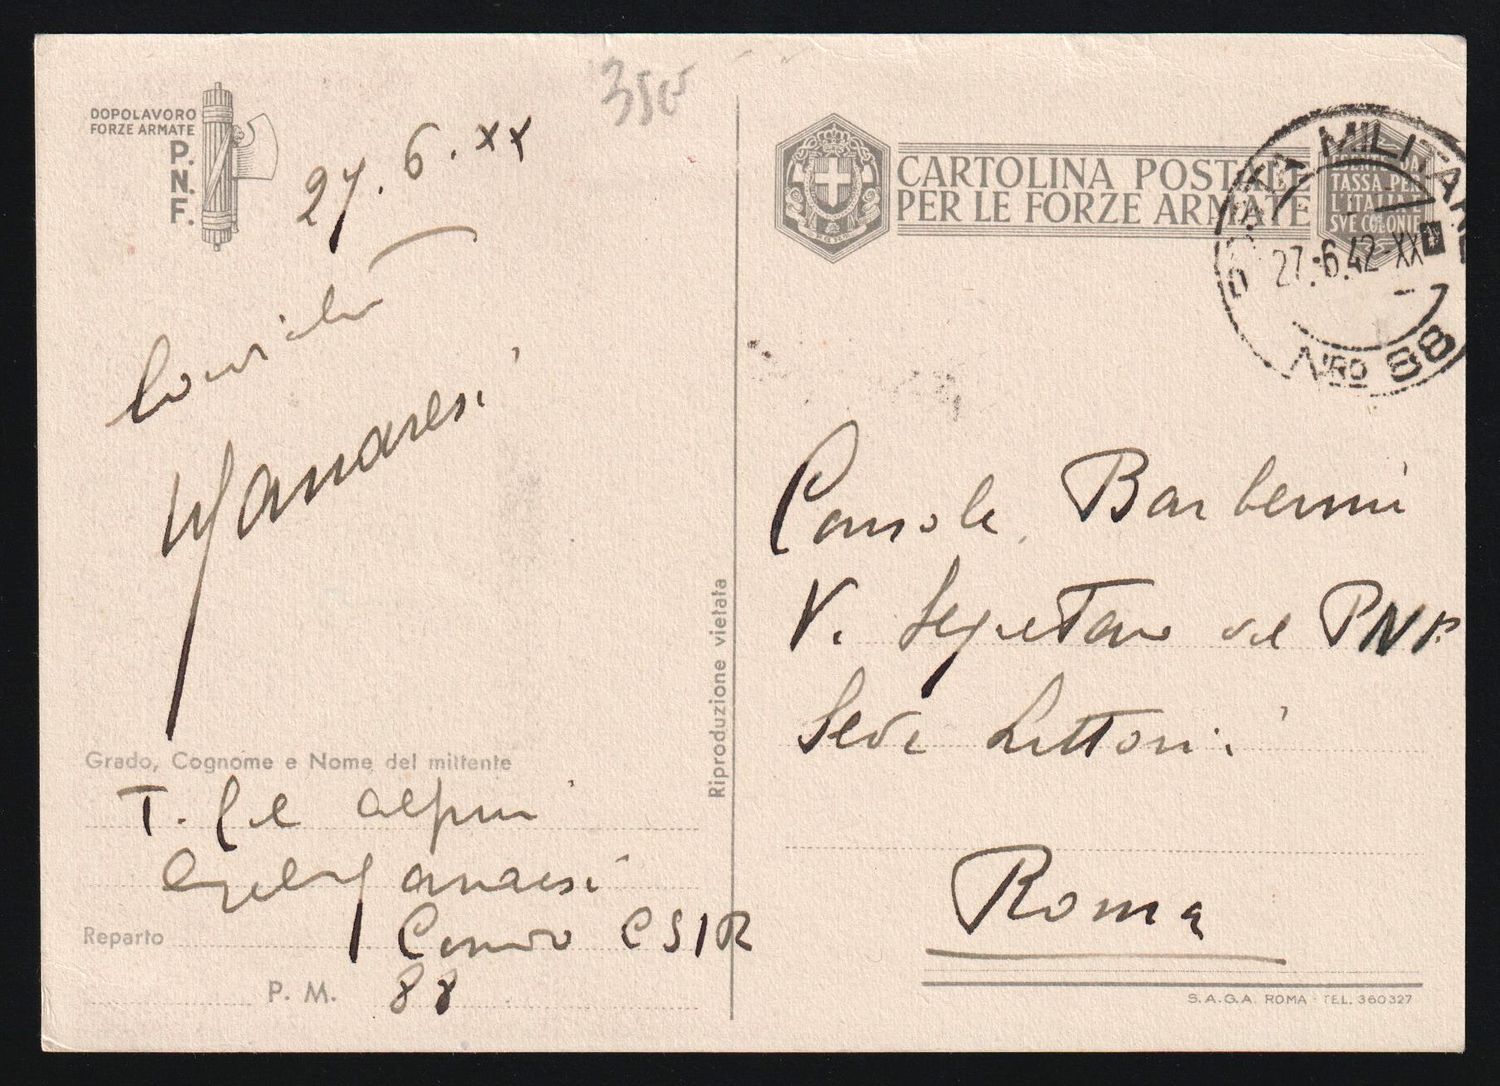 DOPOLAVORO
FORZE ARMATE
P.
N.
F.
350
27. 6. XX
Manaresi
Grado, Cognome e Nome del mittente
T. Col Alpini
Angelo Manaresi
Reparto Comdo CSIR
P. M. 88
Riproduzione vietata
CARTOLINA POSTALE
PER LE FORZE ARMATE
ESENTE DA
TASSA PER
L'ITALIA E
SVE COLONIE
POSTA MILITARE
27.-6.42-XX
NRO 88
Console Barberini
V. Segretario del PNF
Sede Littoria
Roma
S.A.G.A. ROMA - TEL. 360327